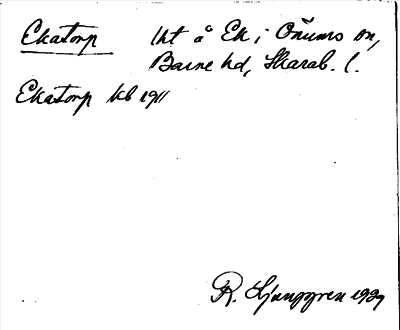 Ekatorp lht å Ek i Önums sn,
Barne hd, Skarab. l.
Ekatorp kb 1911
R. Ljunggren 1929